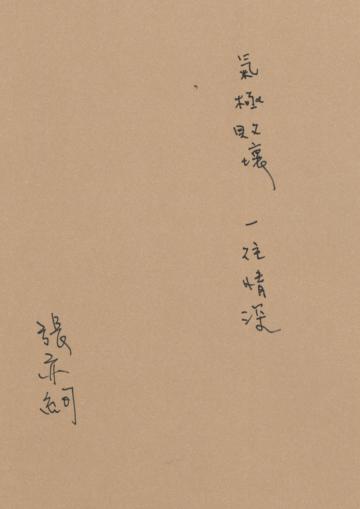 氣極敗壞 一往情深
張亦絢